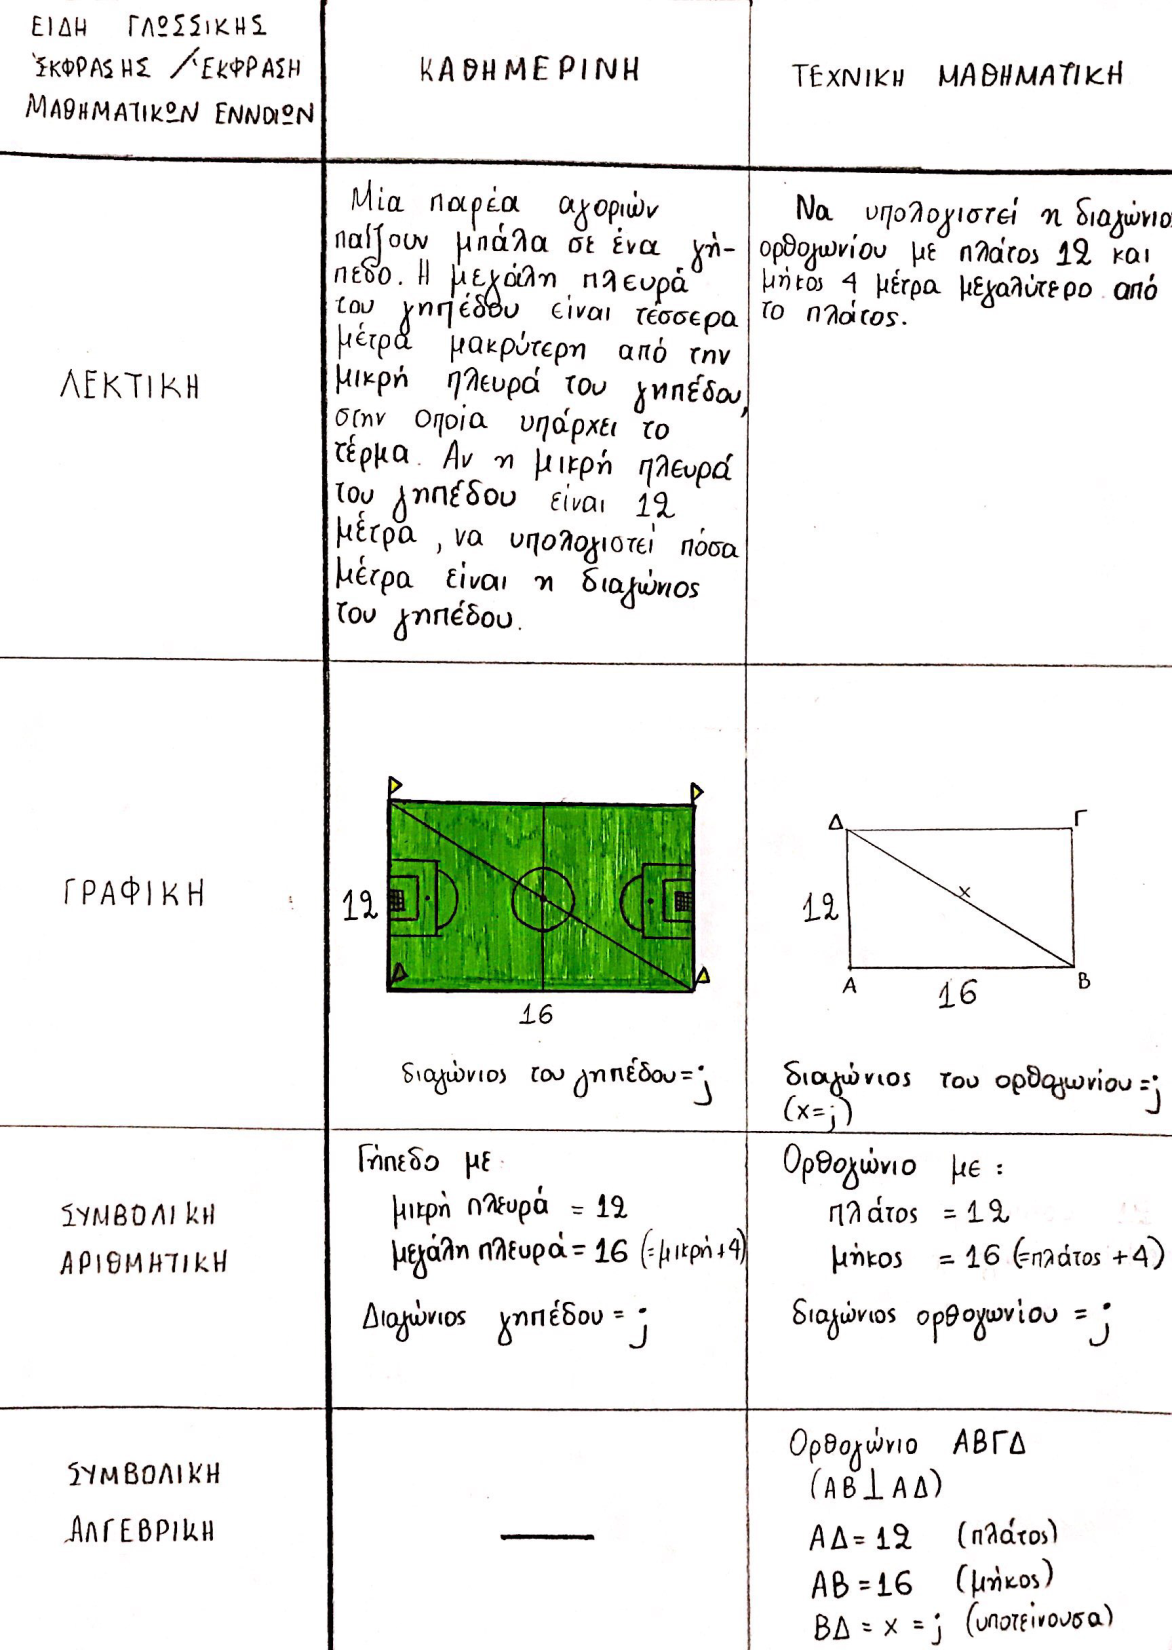 ΕΙΔΗ ΓΛΩΣΣΙΚΗΣ
ΈΚΦΡΑΣΗΣ / ΈΚΦΡΑΣΗ
ΜΑΘΗΜΑΤΙΚΩΝ ΕΝΝΟΙΩΝ
ΚΑΘΗΜΕΡΙΝΗ
ΤΕΧΝΙΚΗ ΜΑΘΗΜΑΤΙΚΗ
ΛΕΚΤΙΚΗ
Μία παρέα αγοριών
παίζουν μπάλα σε ένα γή-
πεδο. Η μεγάλη πλευρά
του γηπέδου είναι τέσσερα
μέτρα μακρύτερη από την
μικρή πλευρά του γηπέδου,
στην οποία υπάρχει το
τέρμα. Αν η μικρή πλευρά
του γηπέδου είναι 12
μέτρα, να υπολογιστεί πόσα
μέτρα είναι η διαγώνιος
του γηπέδου.
Να υπολογιστεί η διαγώνιο
ορθογωνίου με πλάτος 12 και
μήκος 4 μέτρα μεγαλύτερο από
το πλάτος.
ΓΡΑΦΙΚΗ
12
16
διαγώνιος του γηπέδου = ;
Δ Γ
x
12
Α Β
16
διαγώνιος του ορθογωνίου = ;
(x = ;)
ΣΥΜΒΟΛΙΚΗ
ΑΡΙΘΜΗΤΙΚΗ
Γήπεδο με
μικρή πλευρά = 12
μεγάλη πλευρά = 16 (=μικρή+4)
Διαγώνιος γηπέδου = ;
Ορθογώνιο με :
πλάτος = 12
μήκος = 16 (=πλάτος +4)
διαγώνιος ορθογωνίου = ;
ΣΥΜΒΟΛΙΚΗ
ΑΛΓΕΒΡΙΚΗ
Ορθογώνιο ΑΒΓΔ
(ΑΒ⊥ΑΔ)
ΑΔ = 12 (πλάτος)
ΑΒ = 16 (μήκος)
ΒΔ = x = ; (υποτείνουσα)